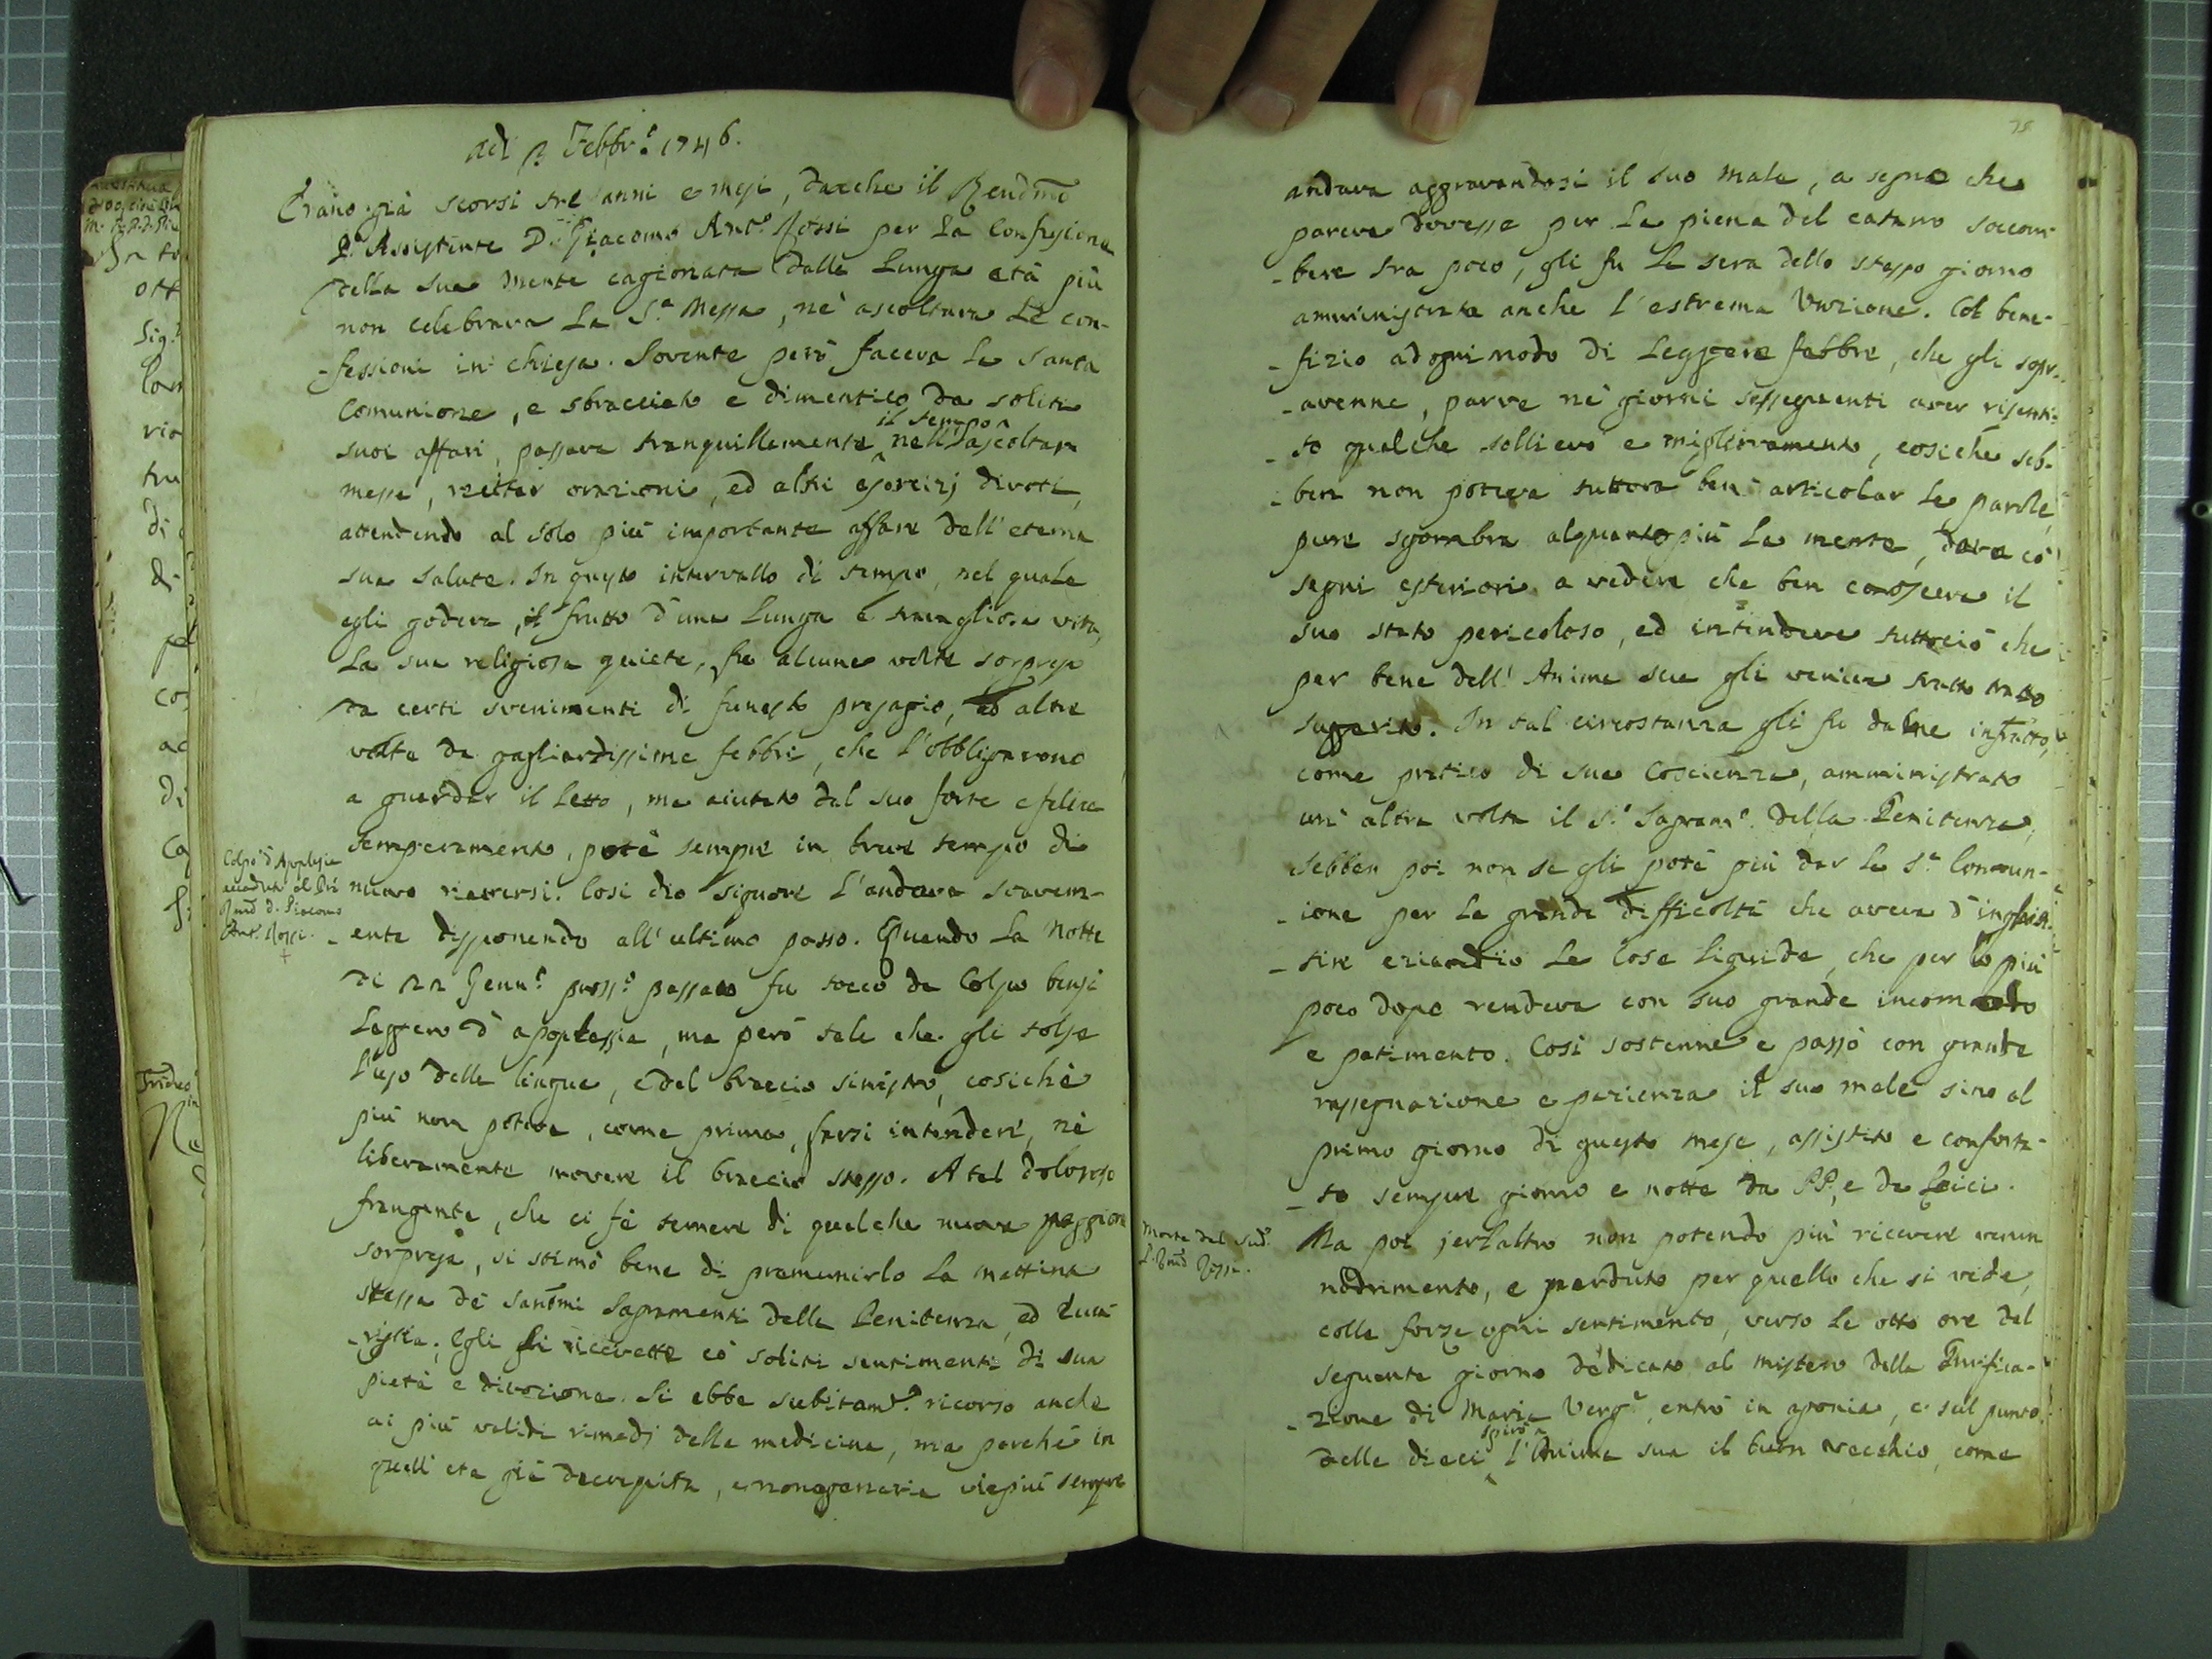 adì 2. Febbr.º 1746.
Erano già scorsi tre anni e mesi, dacche il Rendmo
P. Assistente D. Giacomo Ant.º Rossi per la Confusione
della sua mente cagionata dalla Lunga età più
non celebrava la S.ª Messa, nè ascoltava le con-
-fessioni in chiesa. Sovente però faceva la Santa
Comunione, e sbracciato e dimentico da soliti
il tempo
suoi affari, passava tranquillamente nell'ascoltar
messe, recitar orazioni, ed altri esercizj divoti,
attendendo al solo più importante affare dell'eterna
sua salute. In questo intervallo di tempo, nel quale
egli godeva, il frutto d'una Lunga e travagliosa vita,
La sua religiosa quiete, fu alcune volte sorpresa
da certi svenimenti di funesto presagio, ed altre
volte da gagliardissime febbri, che l'obbligarono
a guardar il Letto, ma aiutato dal suo forte e felice
temperamento, potè sempre in breve tempo di
nuovo riaversi. Così dio Signore l'andava soavem-
-ente disponendo all'ultimo passo. Quando la Notte
di 22 Genn.º pross.º passato fu tocco da Colpo bensì
Leggero d'apoplessia, ma però tale che gli tolse
l'uso della lingua, e del braccio sinistro, cosichè
più non poteva, come prima, farsi intendere, nè
liberamente movere il braccio stesso. A tal doloroso
frangente, che ci fè temere di qualche nuova peggiore
sorpresa, si stimò bene di premunirlo la mattina
stessa de' Santmi Sagramenti della Penitenza, ed Euca-
-ristia. Egli li ricevette co' soliti sentimenti di sua
pietà e divozione. Si ebbe subitam.e ricorso anche
ai più validi rimedj della medicina, ma perchè in
quell'eta già decrepita, e nonagenaria viepiù sempre
Colpo d'Apoplesia
accaduto al Prê
Rmo d. Giacomo
Ant.º Rossi.
andava aggravandosi il suo male, a segno che
pareva dovesse per la piena del catarro soccom-
-bere tra poco, gli fu la sera dello stesso giorno
amministrata anche l'estrema Unzione. Col bene-
-fizio ad ogni modo di Leggere febbre, che gli sopr-
-avenne, parve nè giorni susseguenti aver risenti-
-to qualche sollievo e miglioramento, cosichè seb-
-ben non poteva tuttora ben articolar le parole,
pure sgombra alquanto più la mente, dava co'
segni esteriori a vedere che ben conosceva il
suo stato pericoloso, ed intendeva tuttociò che
per bene dell'Anima sua gli veniva tratto tratto
suggerito. In tal circostanza gli fu da me infratto,
come pratico di sua Coscienza, amministrato
un'altra volta il S.º Sagram.º della Penitenza,
sebben poi non se gli potè più dar la S.ª Comun-
-ione per la grande difficoltà che aveva d'inghiot-
-tire eziandio le cose liquide, che per lo più
poco dopo rendeva con suo grande incomodo
e patimento. Così sostenne e passò con grande
rassegnazione e pazienza il suo male sino al
primo giorno di questo mese, assistito e conforta-
-to sempre giorno e notte da PP. e da Laici.
Ma poi jerl'altro non potendo più ricevere verun
nodrimento, e perduto per quello che si vide,
colle forze ogni sentimento, verso le otto ore del
seguente giorno dedicato al mistero della Purifica-
-zione di Maria Verg.e entrò in agonia, e sul punto
spirò
delle dieci l'Anima sua il buon vecchio, come
Morte del sud.º
P. Rmo Rossi.